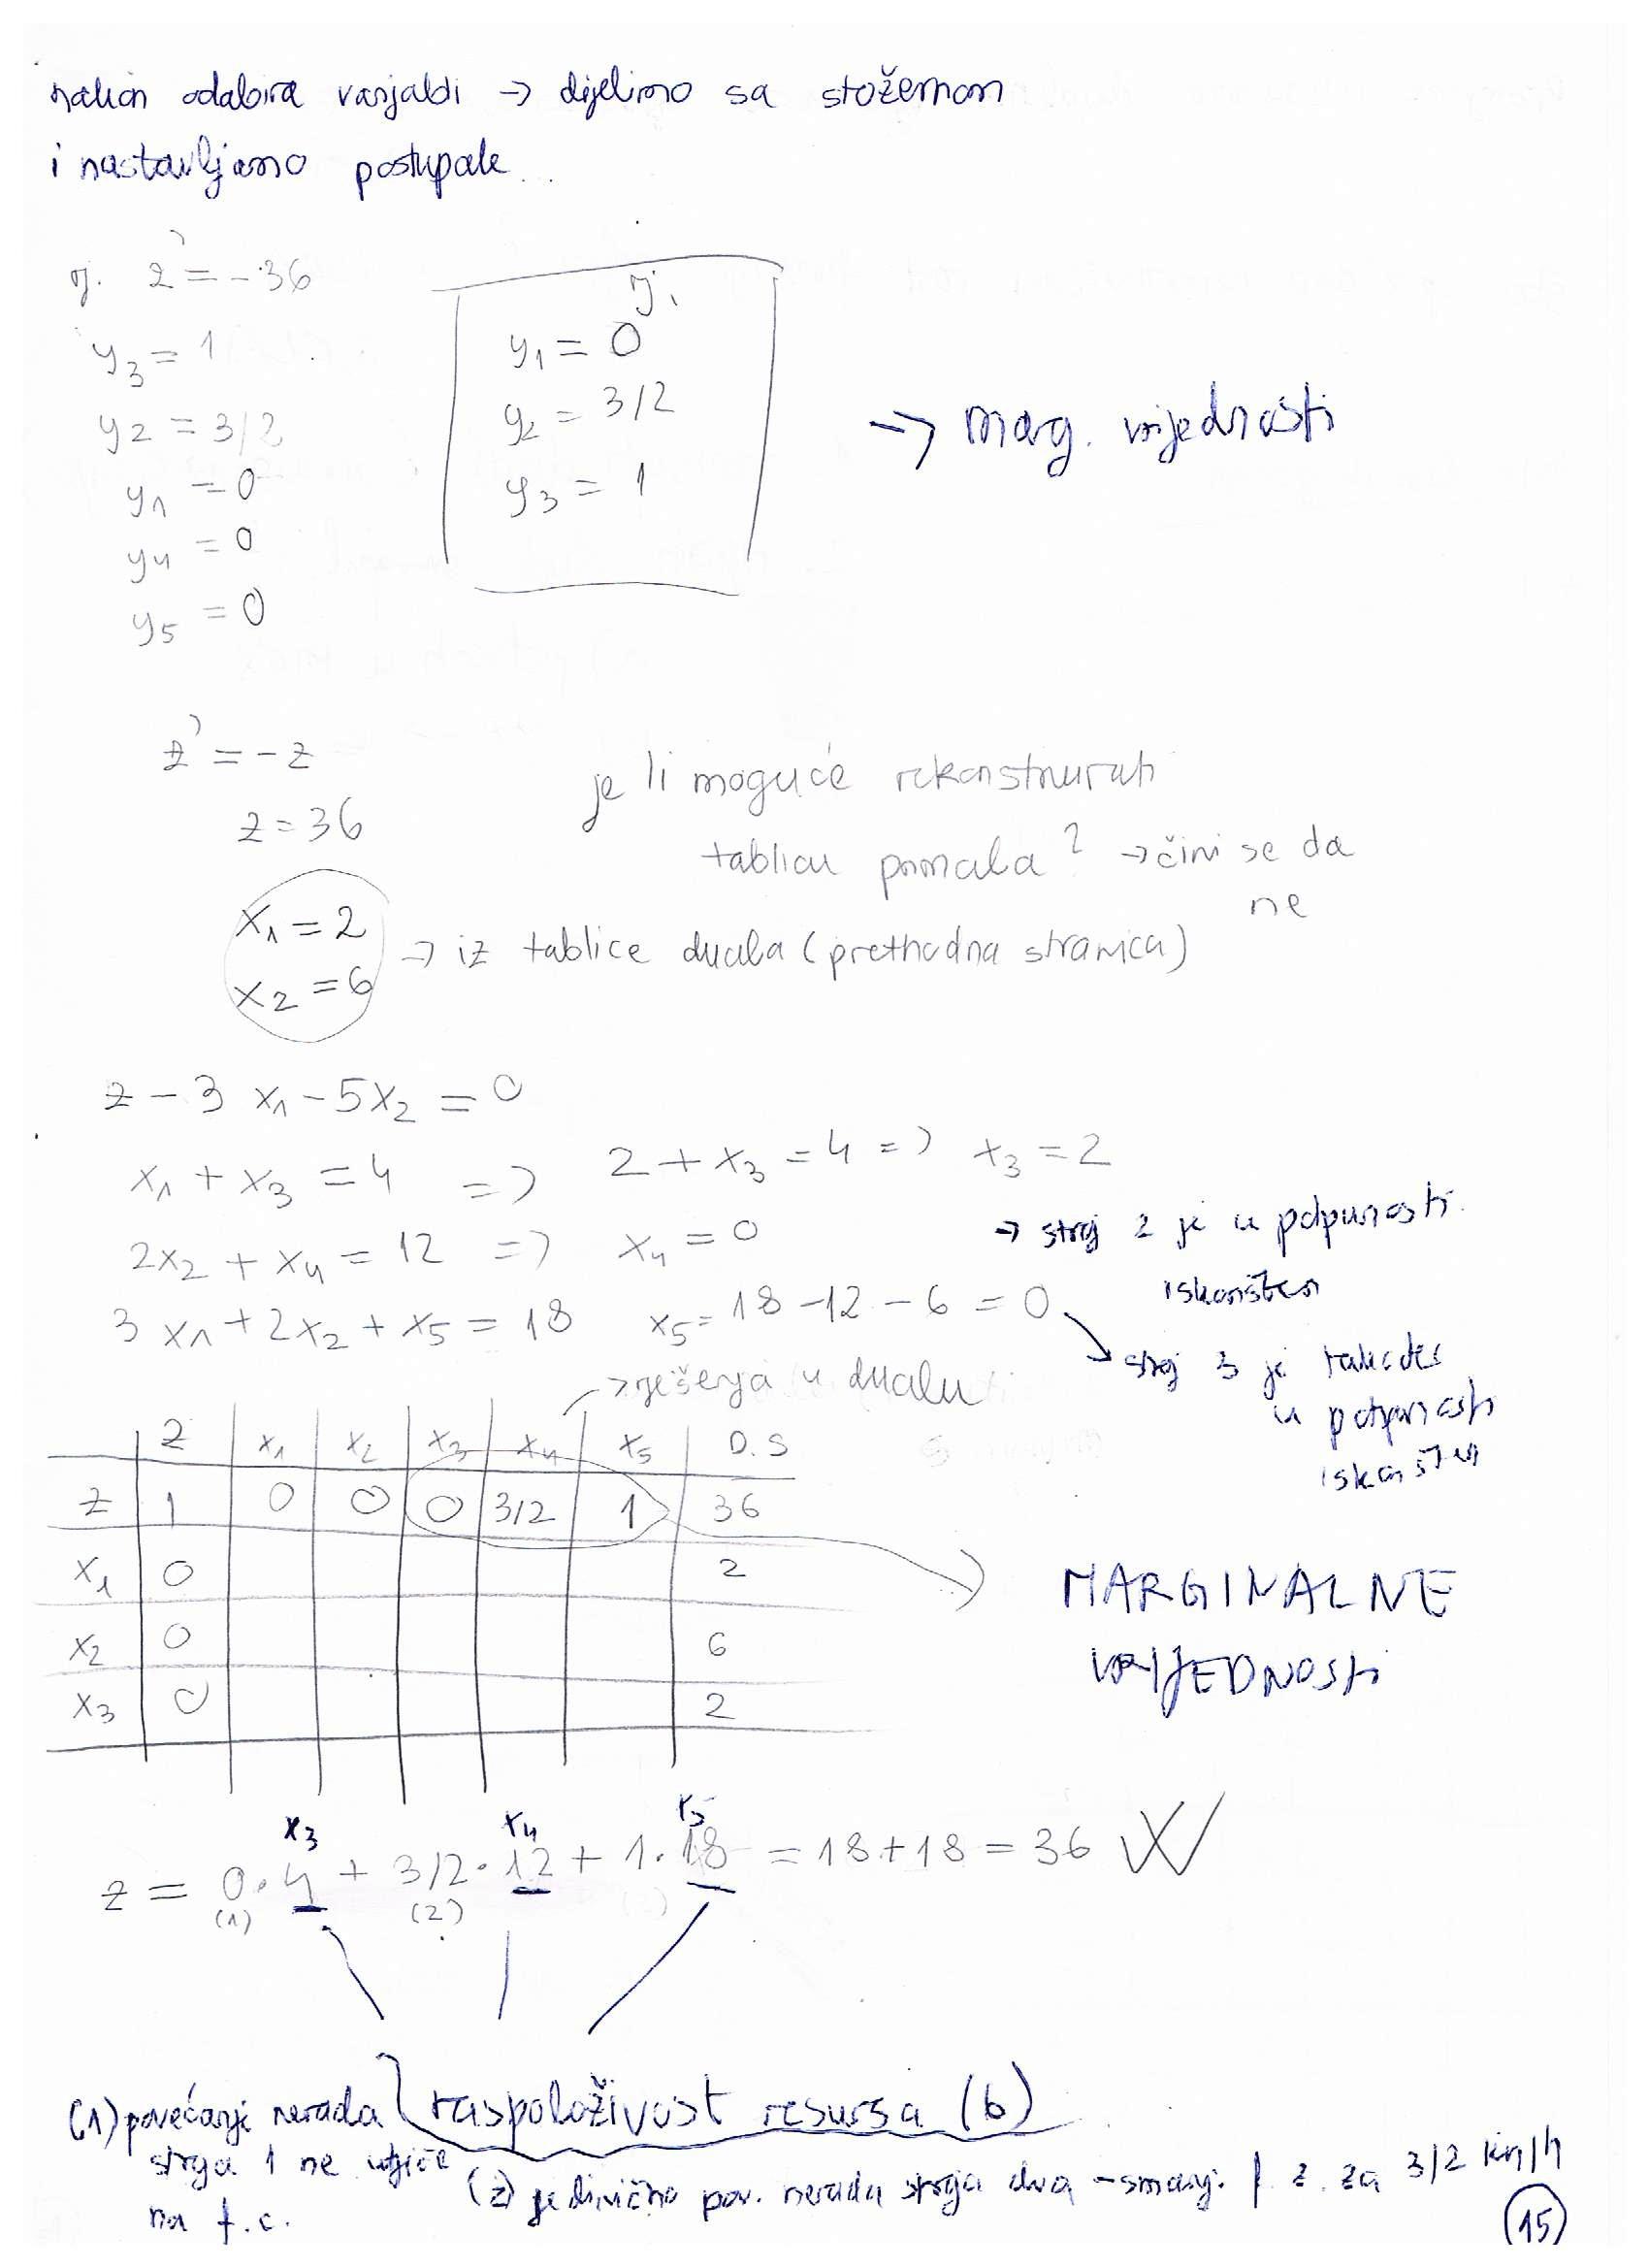 nakon odabira varijabli → dijelimo sa stožernom
i nastavljamo postupak...
rj. z' = -36
y3 = 1
y2 = 3/2
y1 = 0
y4 = 0
y5 = 0
rj.
y1 = 0
y2 = 3/2
y3 = 1
→ mag. vrijednosti
z' = -z
z = 36
je li moguće rekonstruirati
tablicu primala? → čini se da
ne
x1 = 2
x2 = 6
→ iz tablice duala (prethodna stranica)
z - 3 x1 - 5x2 = 0
x1 + x3 = 4 => 2 + x3 = 4 => x3 = 2
2x2 + x4 = 12 => x4 = 0
→ stroj 2 je u potpunosti
iskorišten
3 x1 + 2x2 + x5 = 18 x5 = 18 - 12 - 6 = 0
stroj 3 je također
u potpunosti
iskorišten
→ rješenja u dualu
z x1 x2 x3 x4 x5 D.S
z 1 0 0 0 3/2 1 36
x1 0 2
x2 0 6
x3 0 2
MARGINALNE
VRIJEDNOSTI
x3 x4 x5
z = 0·4 + 3/2·12 + 1·18 = 18 + 18 = 36
(1) (2)
raspoloživost resursa (b)
(1) povećanje nerada
stroja 1 ne utječe
na f.c.
(2) jedinično pov. nerada stroja dva - smanj. f. z. za 3/2 kn/h
15